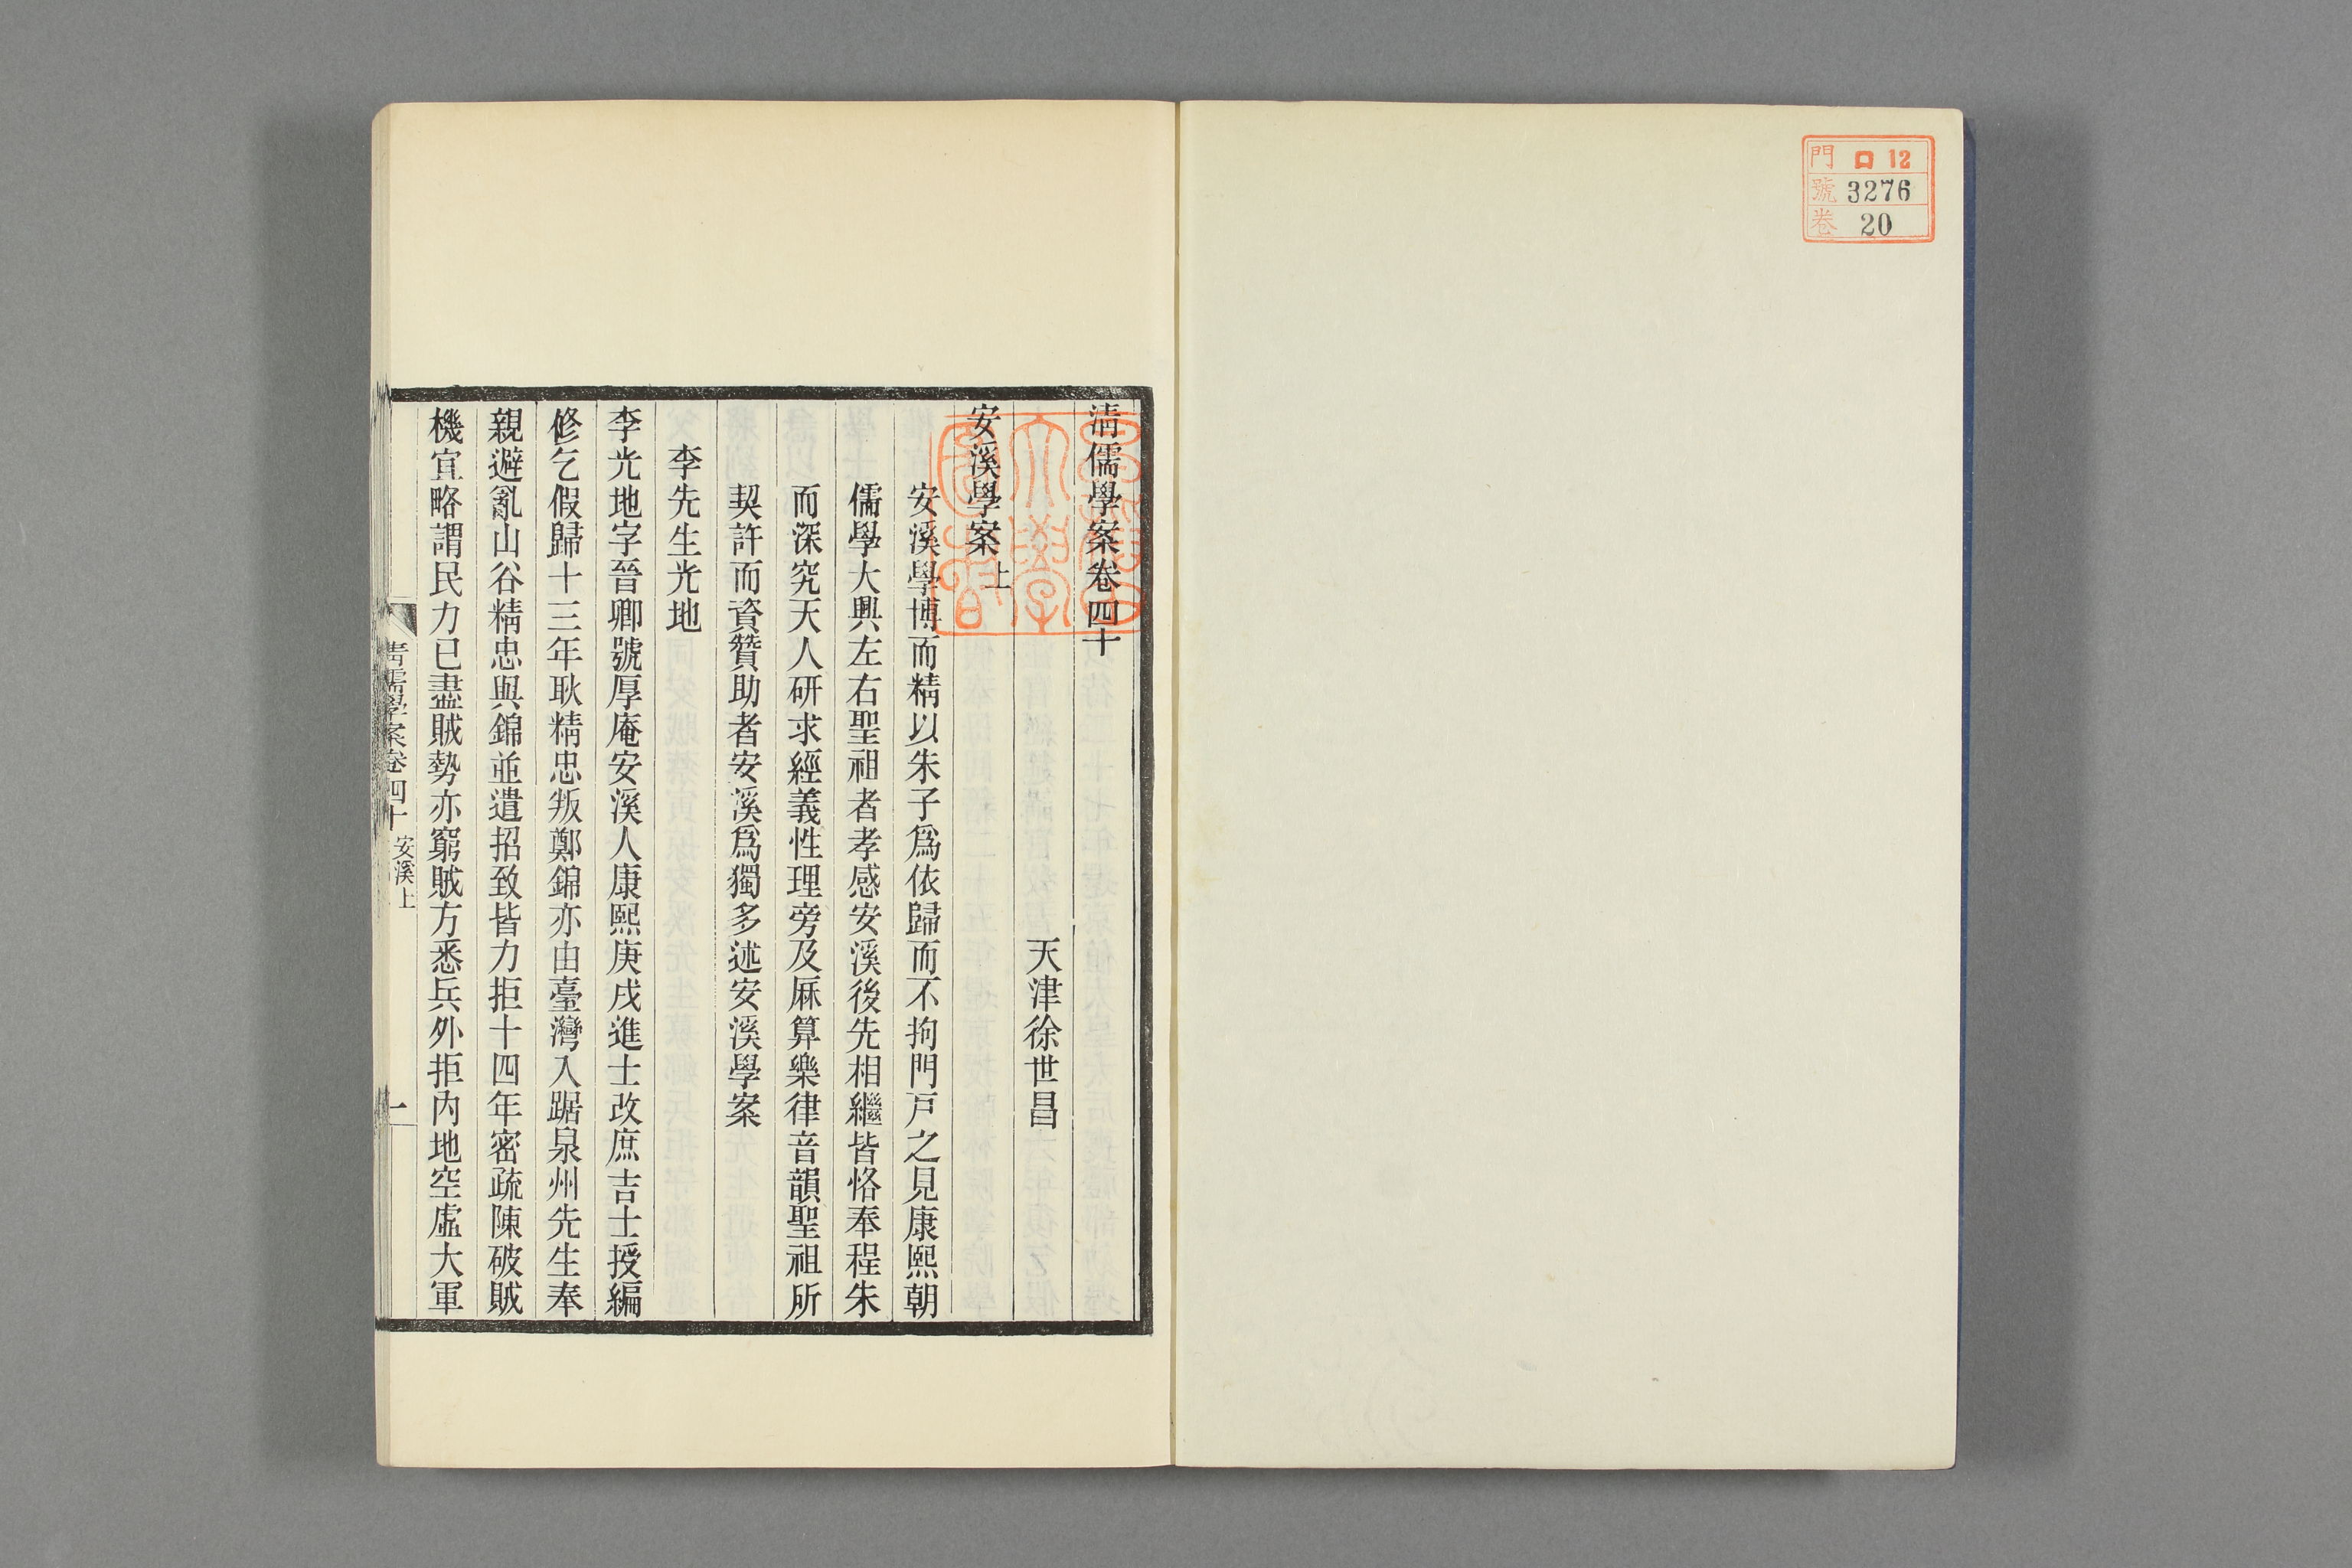 門 ロ 12
號 3276
卷 20
清儒學案卷四十
天津徐世昌
安溪學案上
安溪學博而精以朱子爲依歸而不拘門戸之見康熙朝
儒學大興左右聖祖者孝感安溪後先相繼皆恪奉程朱
而深究天人研求經義性理旁及厤算樂律音韻聖祖所
契許而資贊助者安溪爲獨多述安溪學案
李先生光地
李光地字晉卿號厚庵安溪人康熙庚戌進士改庶吉士授編
修乞假歸十三年耿精忠叛鄭錦亦由臺灣入踞泉州先生奉
親避亂山谷精忠與錦並遣招致皆力拒十四年密疏陳破賊
機宜略謂民力已盡賊勢亦窮賊方悉兵外拒內地空虛大軍
清儒學案卷四十 安溪上 一